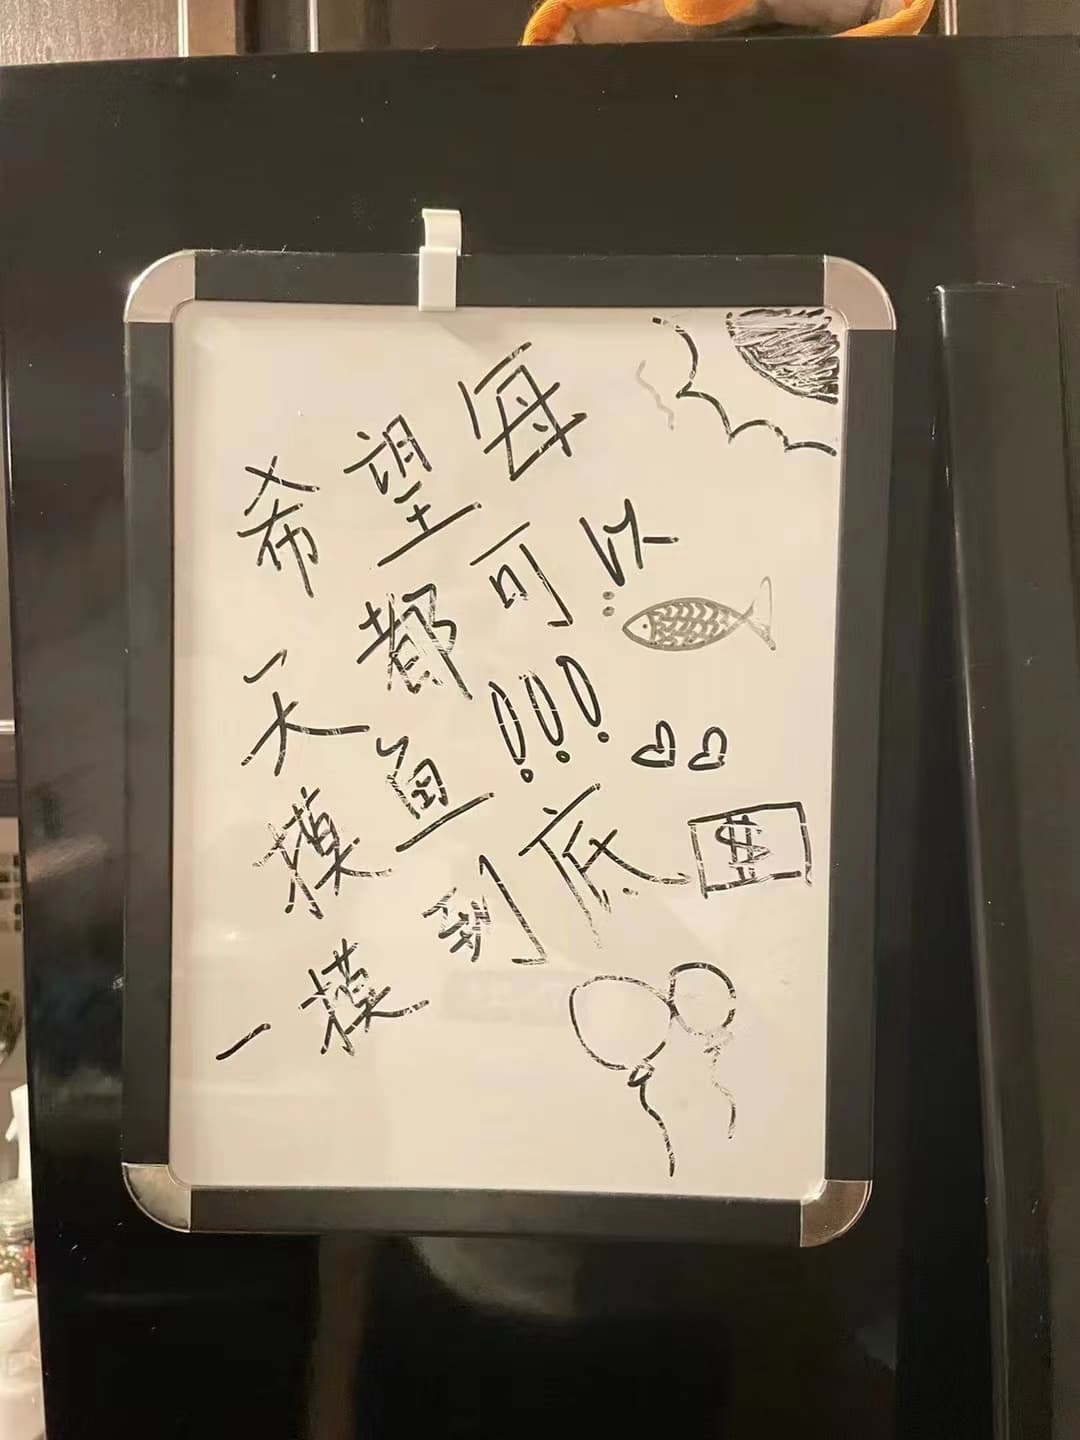 希望每
天都可以
摸鱼!!!
一摸到底
$